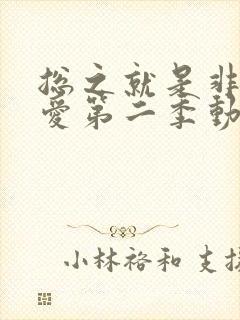 总之就是非
爱第二季动
小林裕和 支援